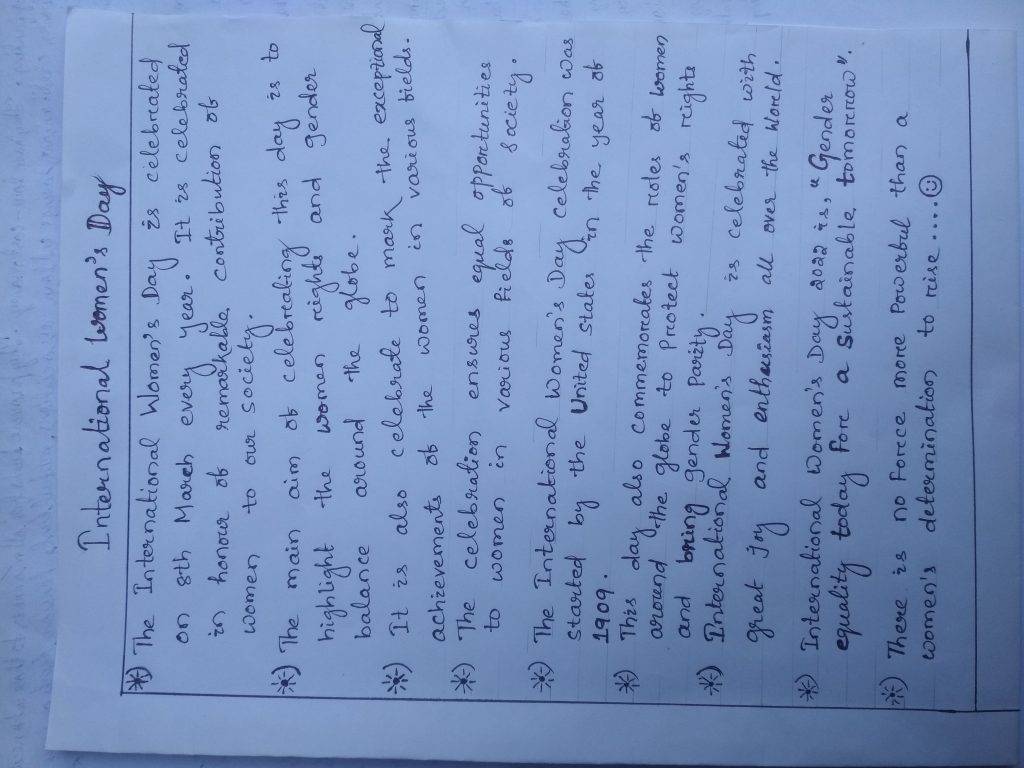 International Women's Day
*) The International Women's Day is celebrated
on 8th March every year. It is celebrated
in honour of remarkable contribution of
women to our society.
*) The main aim of celebrating this day is to
highlight the women rights and gender
balance around the globe.
*) It is also celebrate to mark the exceptional
achievements of the women in various fields.
*) The celebration ensures equal opportunities
to women in various fields of society.
*) The International Women's Day celebration was
started by the United States in the year of
1909.
*) This day also commemorates the roles of women
around the globe to protect women's rights
and bring gender parity.
*) International Women's Day is celebrated with
great joy and enthusiasm all over the World.
*) International Women's Day 2022 is, "Gender
equality today for a Sustainable tomorrow".
*) There is no Force more Powerful than a
women's determination to rise.....☺